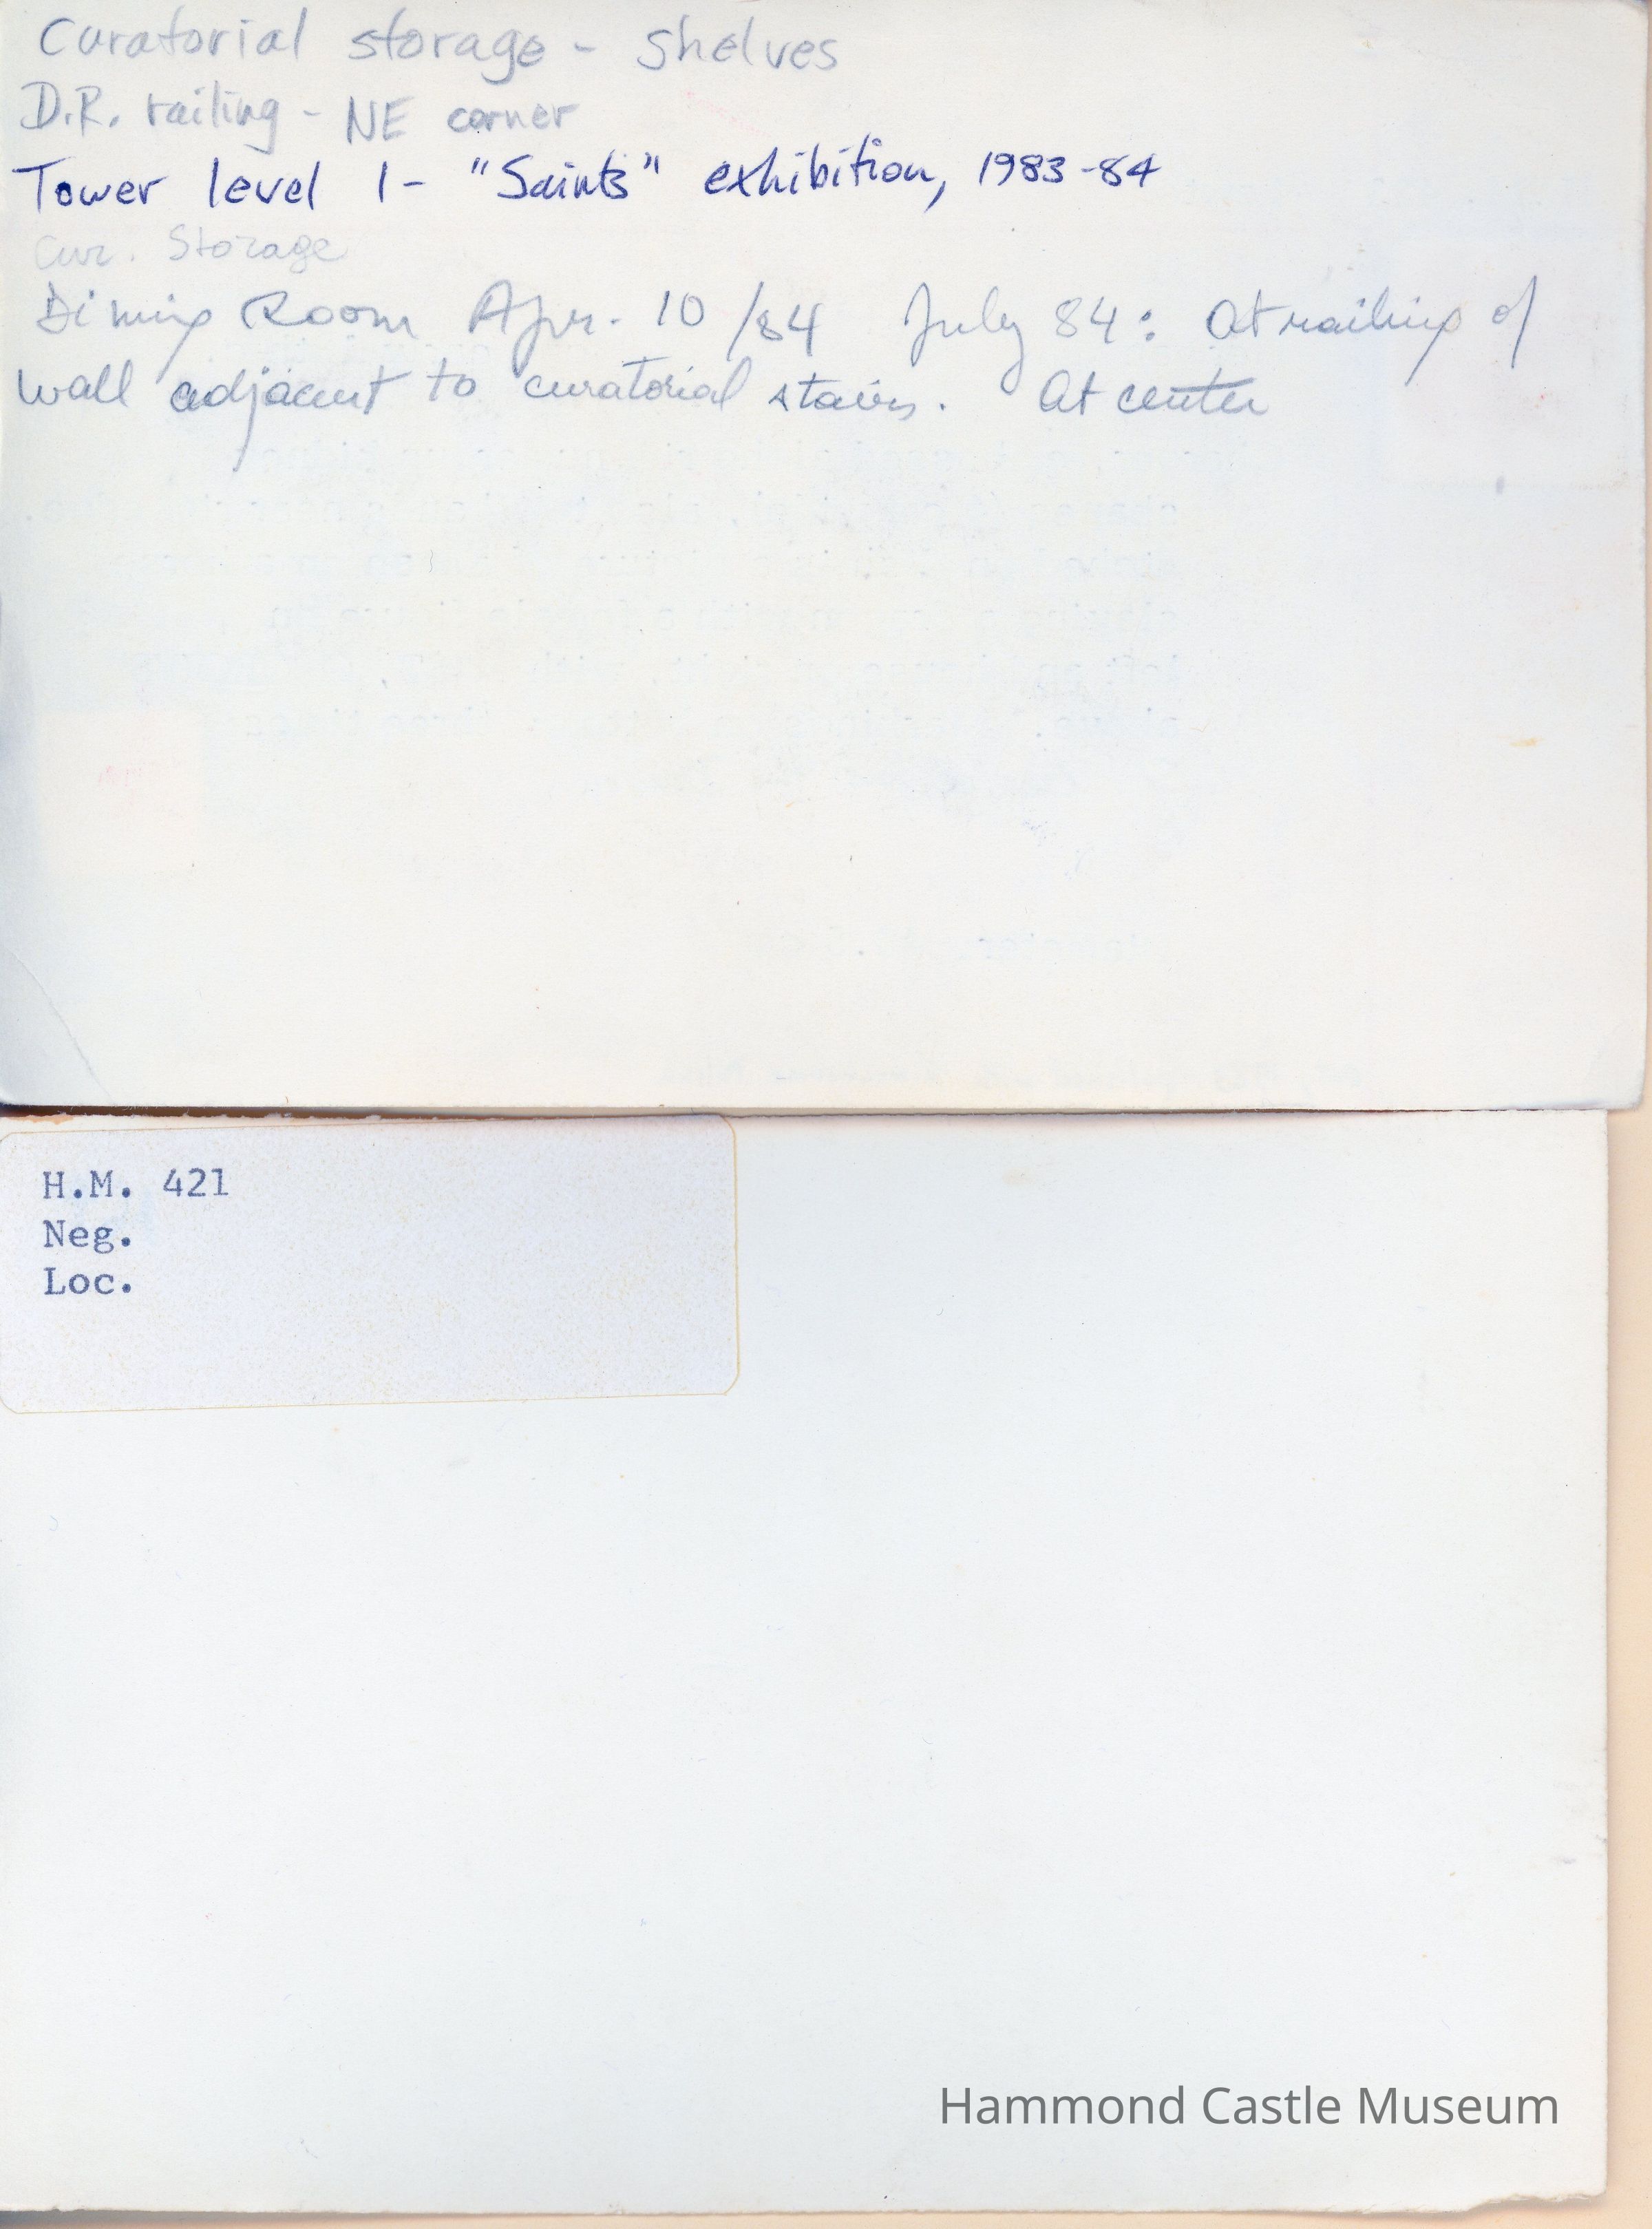 Curatorial storage - shelves
D.R. railing - NE corner
Tower level 1 - "Saints" exhibition, 1983-84
Cur. Storage
Dining Room Apr. 10/84 July 84: At railing of
wall adjacent to curatorial stairs. At center
H.M. 421
Neg.
Loc.
Hammond Castle Museum